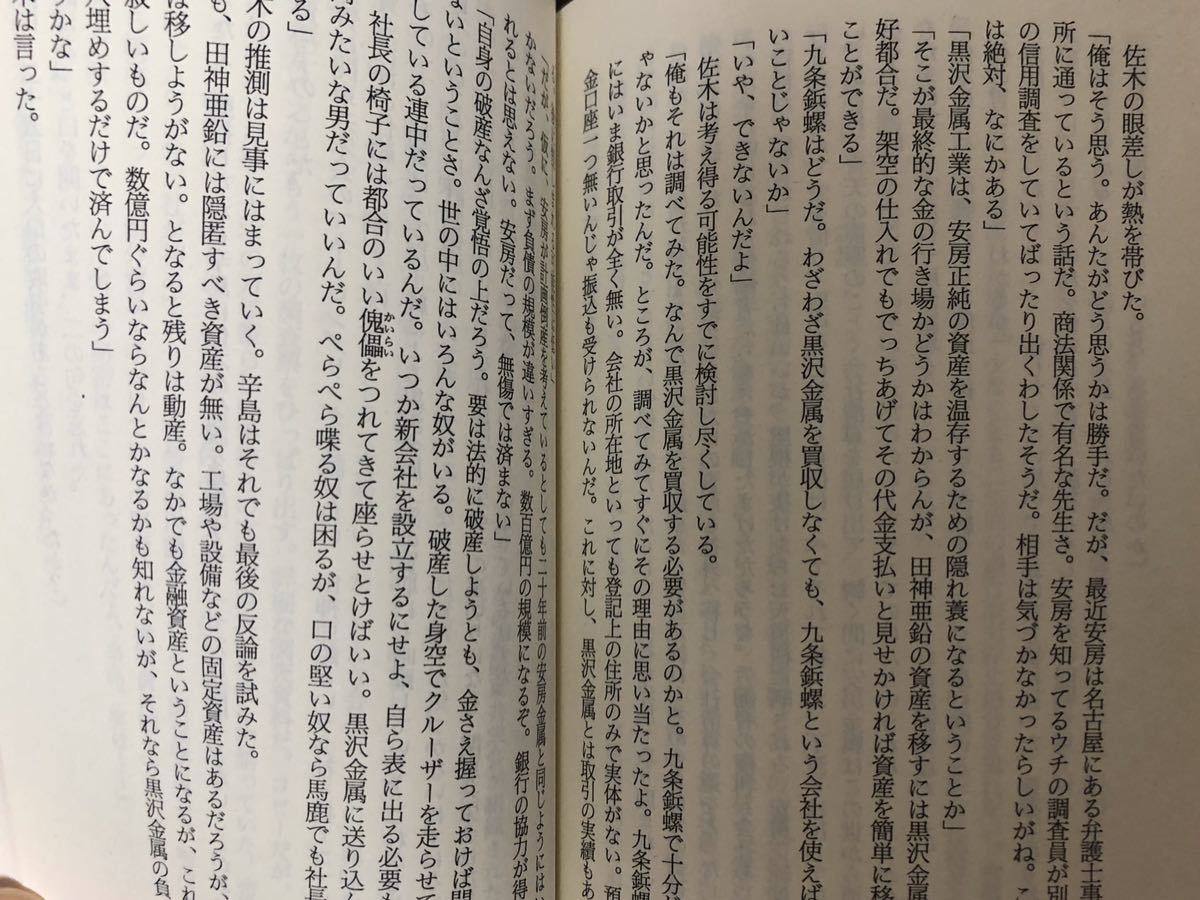 佐木の眼差しが熱を帯びた。
「俺はそう思う。あんたがどう思うかは勝手だ。だが、最近安房は名古屋にある弁護士事
所に通っているという話だ。商法関係で有名な先生さ。安房を知ってるウチの調査員が別
の信用調査をしていてばったり出くわしたそうだ。相手は気づかなかったらしいがね。こ
は絶対、なにかある」
「黒沢金属工業は、安房正純の資産を温存するための隠れ蓑になるということか」
「そこが最終的な金の行き場かどうかはわからんが、田神亜鉛の資産を移すには黒沢金属
好都合だ。架空の仕入れでもでっちあげてその代金支払いと見せかければ資産を簡単に移
ことができる」
「九条鋲螺はどうだ。わざわざ黒沢金属を買収しなくても、九条鋲螺という会社を使えば
いことじゃないか」
「いや、できないんだよ」
佐木は考え得る可能性をすでに検討し尽くしている。
「俺もそれは調べてみた。なんで黒沢金属を買収する必要があるのかと。九条鋲螺で十分
ゃないかと思ったんだ。ところが、調べてみてすぐにその理由に思い当たったよ。九条鋲螺
にはいま銀行取引が全く無い。会社の所在地といっても登記上の住所のみで実体がない。預
金口座一つ無いんじゃ振込も受けられないんだ。これに対し、黒沢金属とは取引の実績もあ
安房が計画倒産を考えているとしても二十年前の安房金属と同じようにはい
かないだろう。まず負債の規模が違いすぎる。数百億円の規模になるぞ。銀行の協力が得
れるとは思えない。安房だって、無傷では済まない」
「自身の破産なんざ覚悟の上だろう。要は法的に破産しようとも、金さえ握っておけば問
ないということさ。世の中にはいろんな奴がいる。破産した身空でクルーザーを走らせて
している連中だっているんだ。いつか新会社を設立するにせよ、自ら表に出る必要も
社長の椅子には都合のいい傀儡をつれてきて座らせとけばいい。黒沢金属に送り込ん
みたいな男だっていいんだ。ぺらぺら喋る奴は困るが、口の堅い奴なら馬鹿でも社長
る」
木の推測は見事にはまっていく。辛島はそれでも最後の反論を試みた。
も、田神亜鉛には隠匿すべき資産が無い。工場や設備などの固定資産はあるだろうが、
は移しようがない。となると残りは動産。なかでも金融資産ということになるが、これ
しいものだ。数億円ぐらいならなんとかなるかも知れないが、それなら黒沢金属の負
穴埋めするだけで済んでしまう」
かな」
は言った。